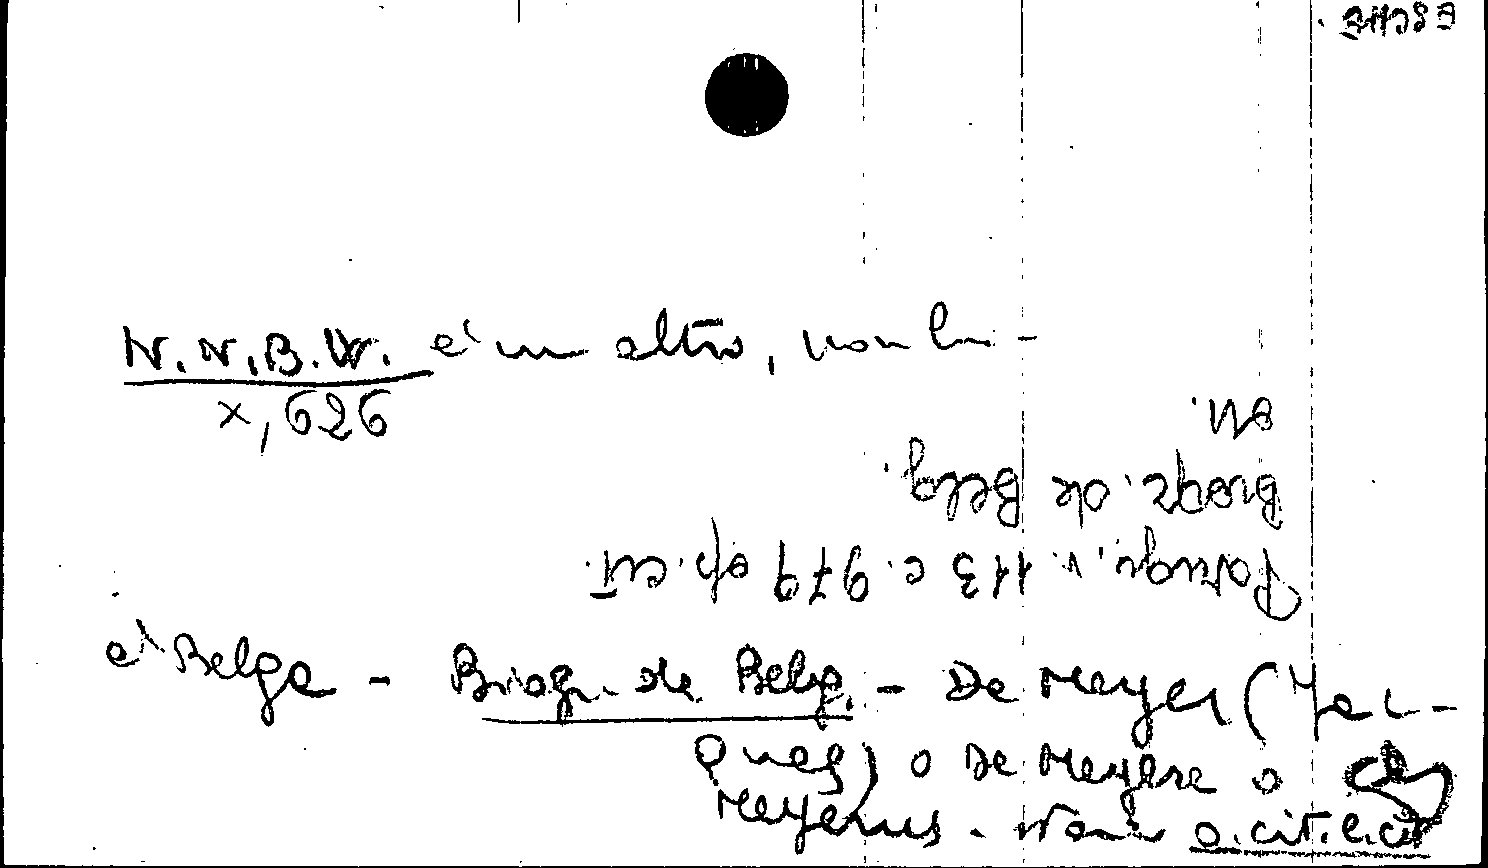 N.N.B.W. e' un altro, non lui -
X, 626
BN.
Biogr. de Belg.
v. 113 c. 979 op. cit.
e' Belga - Biogr. de Belg. - De Meyer (Jac-
ques) o De Meyere o
Meyerus - o. cit. l. cit